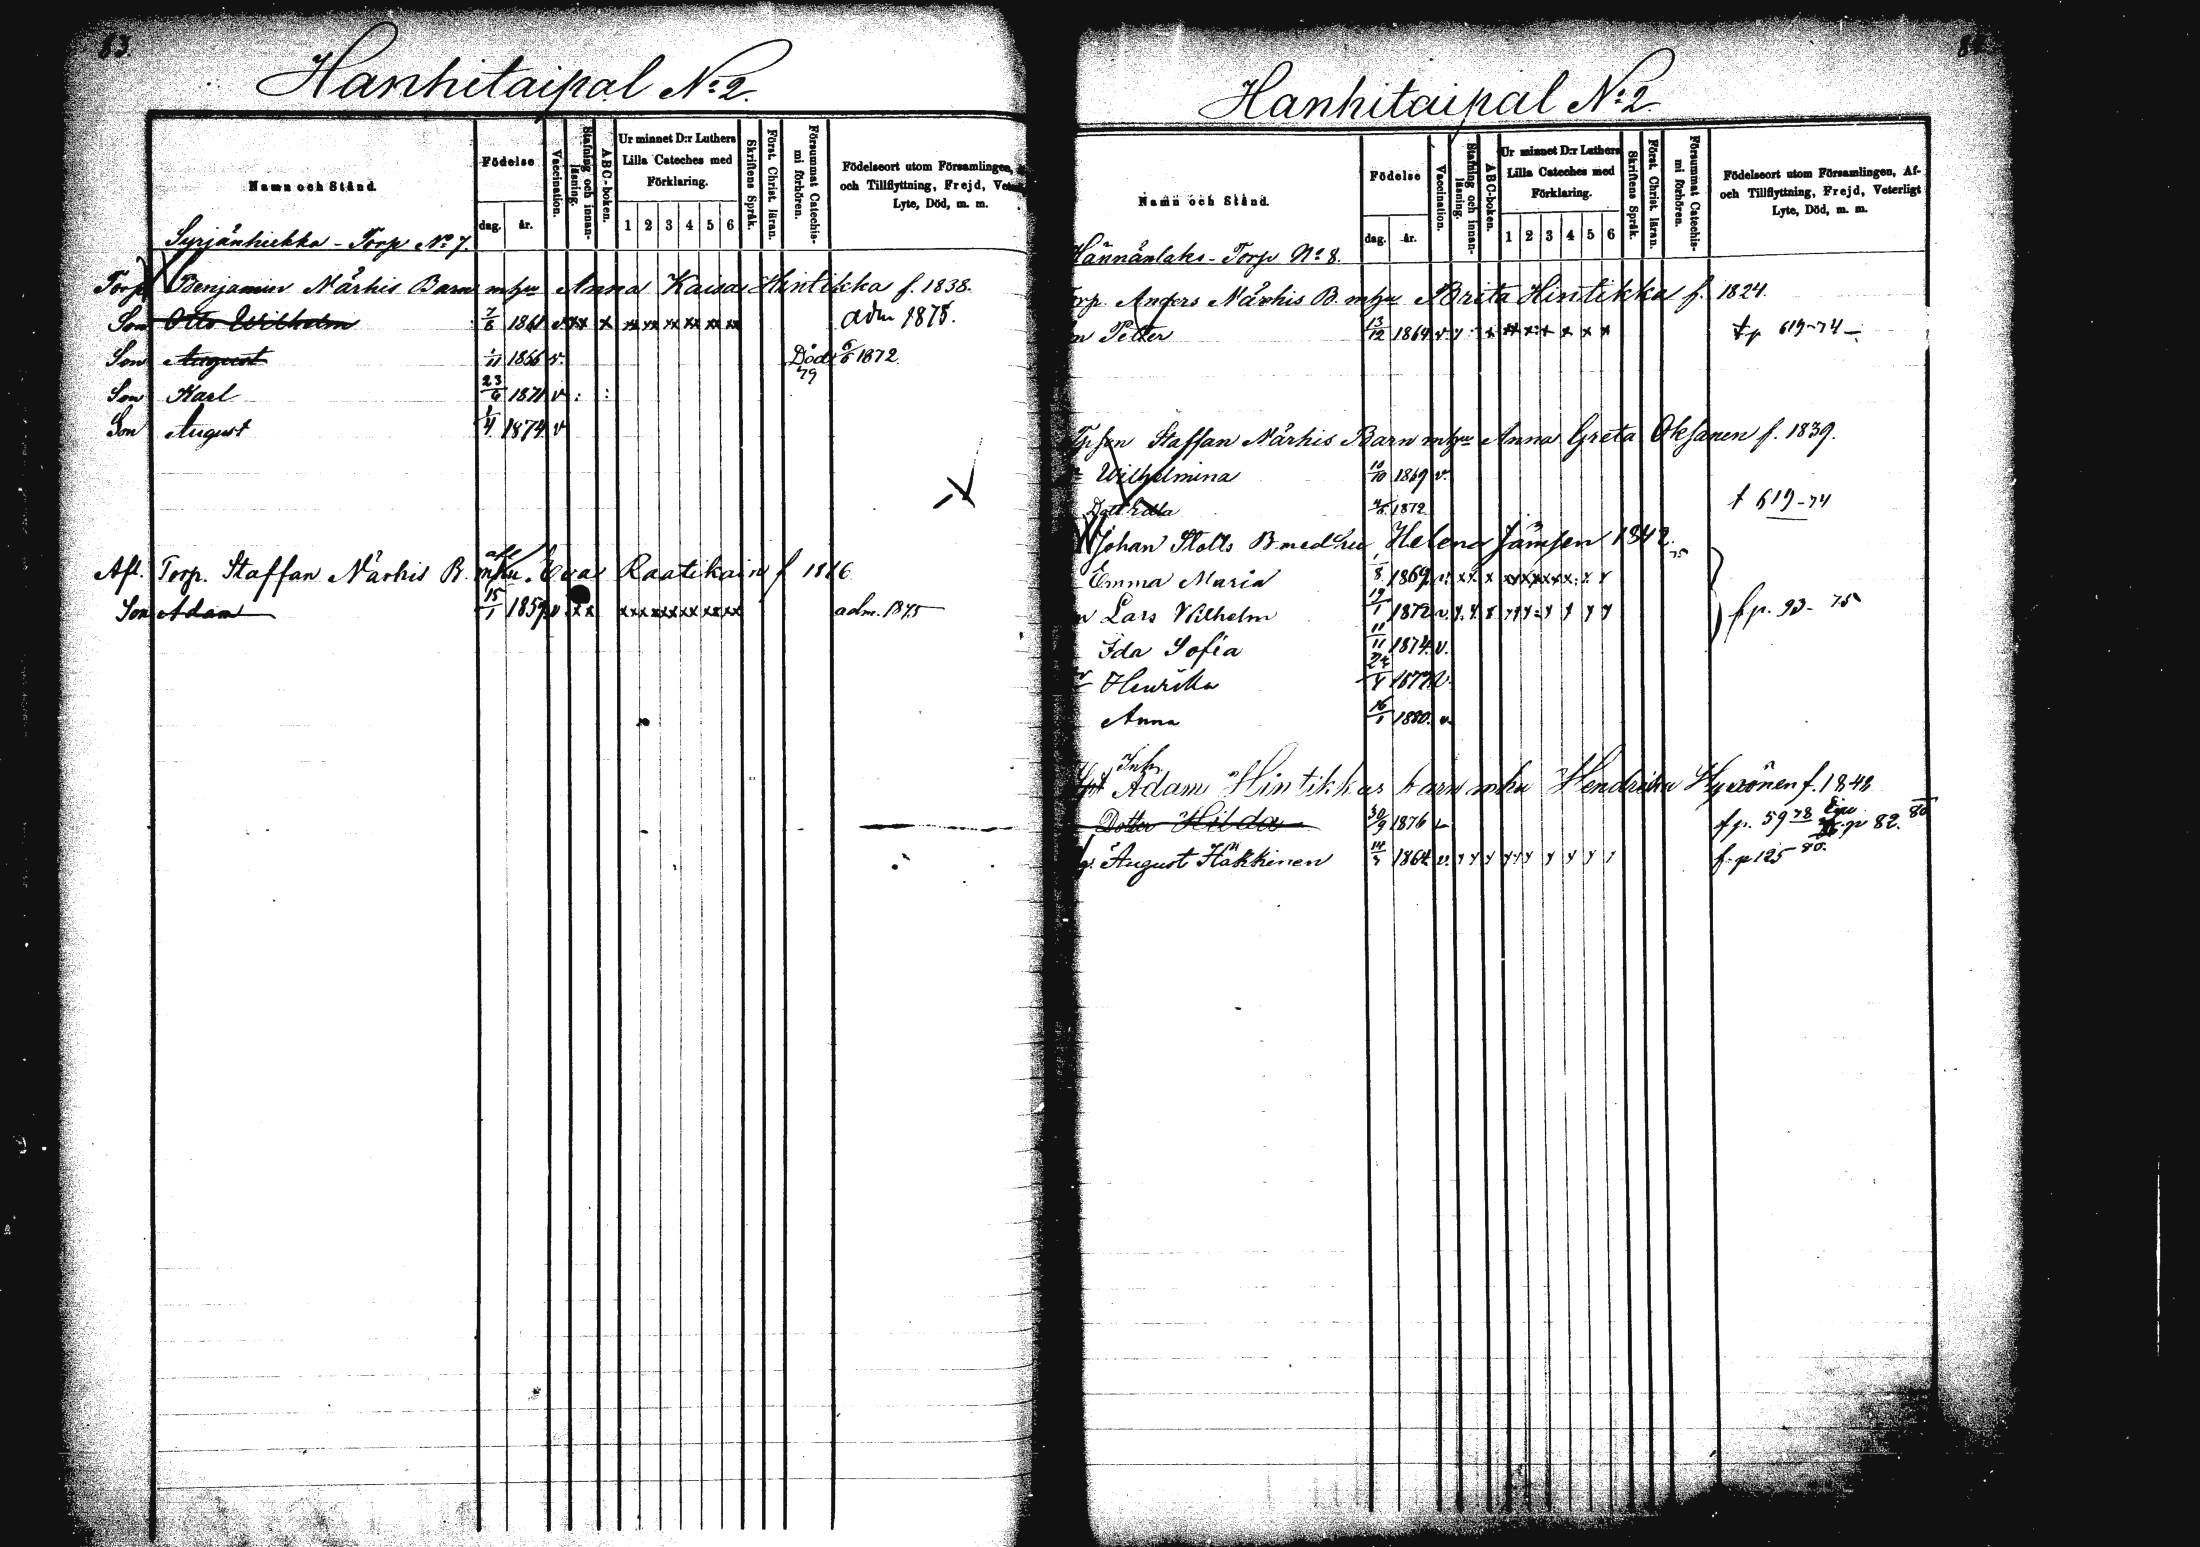 83.
Hanhitaipal No 2.
Namn och Stånd.
Födelse
dag. år.
Vaccination.
Stafning och innan-läsning.
ABC-boken.
Ur minnet D:r Luthers
Lilla Cateches med
Förklaring.
1 2 3 4 5 6
Skriftens Språk.
Först. Christ. läran.
Försummat Catechis-mi förhören.
Födelseort utom Församlingen,
och Tillflyttning, Frejd,
Lyte, Död, m. m.
Syrjänhiekka - Torp No 7.
Torp. Benjamin Närhis Barn mhu Anna Kaisa Hintikka f. 1838.
Son Otto Wilhelm 7/8 1861 v xx x xx xx xx xx xx xx adm 1875.
Son August 1/11 1866 v. Död 1872
79
Son Karl 23/9 1871 v : :
Son August 1/4 1874 v
Afl. Torp. Staffan Närhis B. afl mhu. Eva Raatikain f 1816
Son Adam 15/1 1859 v xx xx xx xx xx xx xx adm. 1875
Hanhitaipal No 2.
Namn och Stånd.
Födelse
dag. år.
Vaccination.
Stafning och innan-läsning.
ABC-boken.
Ur minnet D:r Luthers
Lilla Cateches med
Förklaring.
1 2 3 4 5 6
Skriftens Språk.
Först. Christ. läran.
Försummat Catechis-mi förhören.
Födelseort utom Församlingen, Af-
och Tillflyttning, Frejd, Veterligt
Lyte, Död, m. m.
Hännänlaks - Torp No 8.
Torp. Anders Närhis B. mhu Brita Hintikka f. 1824.
Petter 13/12 1864 v. x x x x x x fp 619-74
Staffan Närhis Barn mhu Anna Greta Oksanen f. 1839.
Wilhelmina 10/10 1869 v.
Dott Edla 1872 f 619-74
Johan Stolts B medhu Helena Jämsen 1842.
75
Emma Maria 1/8 1869 v. xx x xxxxxx x x
Lars Wilhelm 19/1 1872 v. f.p. 93-75
Ida Sofia 11/11 1874 v.
Henrika 1877 v.
Anna 16/1 1880. v.
Inh.
Adam Hintikkas barn mhu Hendrika Hyvönen f. 1848
Dotter Hilda 30/9 1876 v f.p. 59 78 p 82. 80
August Häkkinen 1864 v. f. p 125 80.